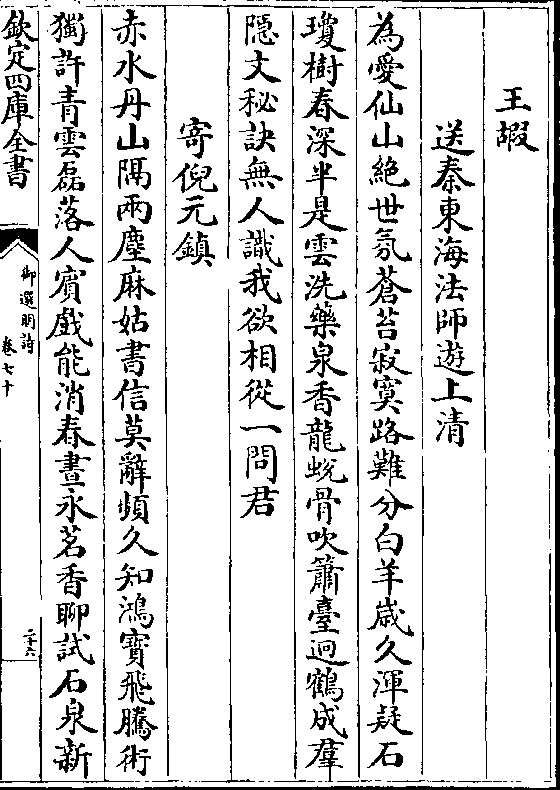 王嘏
送秦東海法師遊上清
為愛仙山絶世氛蒼苔寂寞路難分白羊歳久渾疑石
瓊樹春深半是雲洗藥泉香龍蛻骨吹簫臺迥鶴成羣
隠文秘訣無人識我欲相從一問君
寄倪元鎮
赤水丹山隔兩塵麻姑書信莫辭頻久知鴻寳飛騰術
獨許青雲磊落人賓戲能消春晝永茗香聊試石泉新
欽定四庫全書
御選明詩
卷七十
二十六